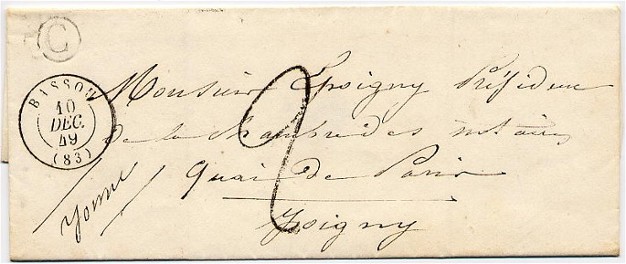 C
BASSOU
10
DEC.
49
(83)
2
Monsieur Epoigny Présiden
de la Chambre des notaires
Quai de Paris
Joigny
Yonne